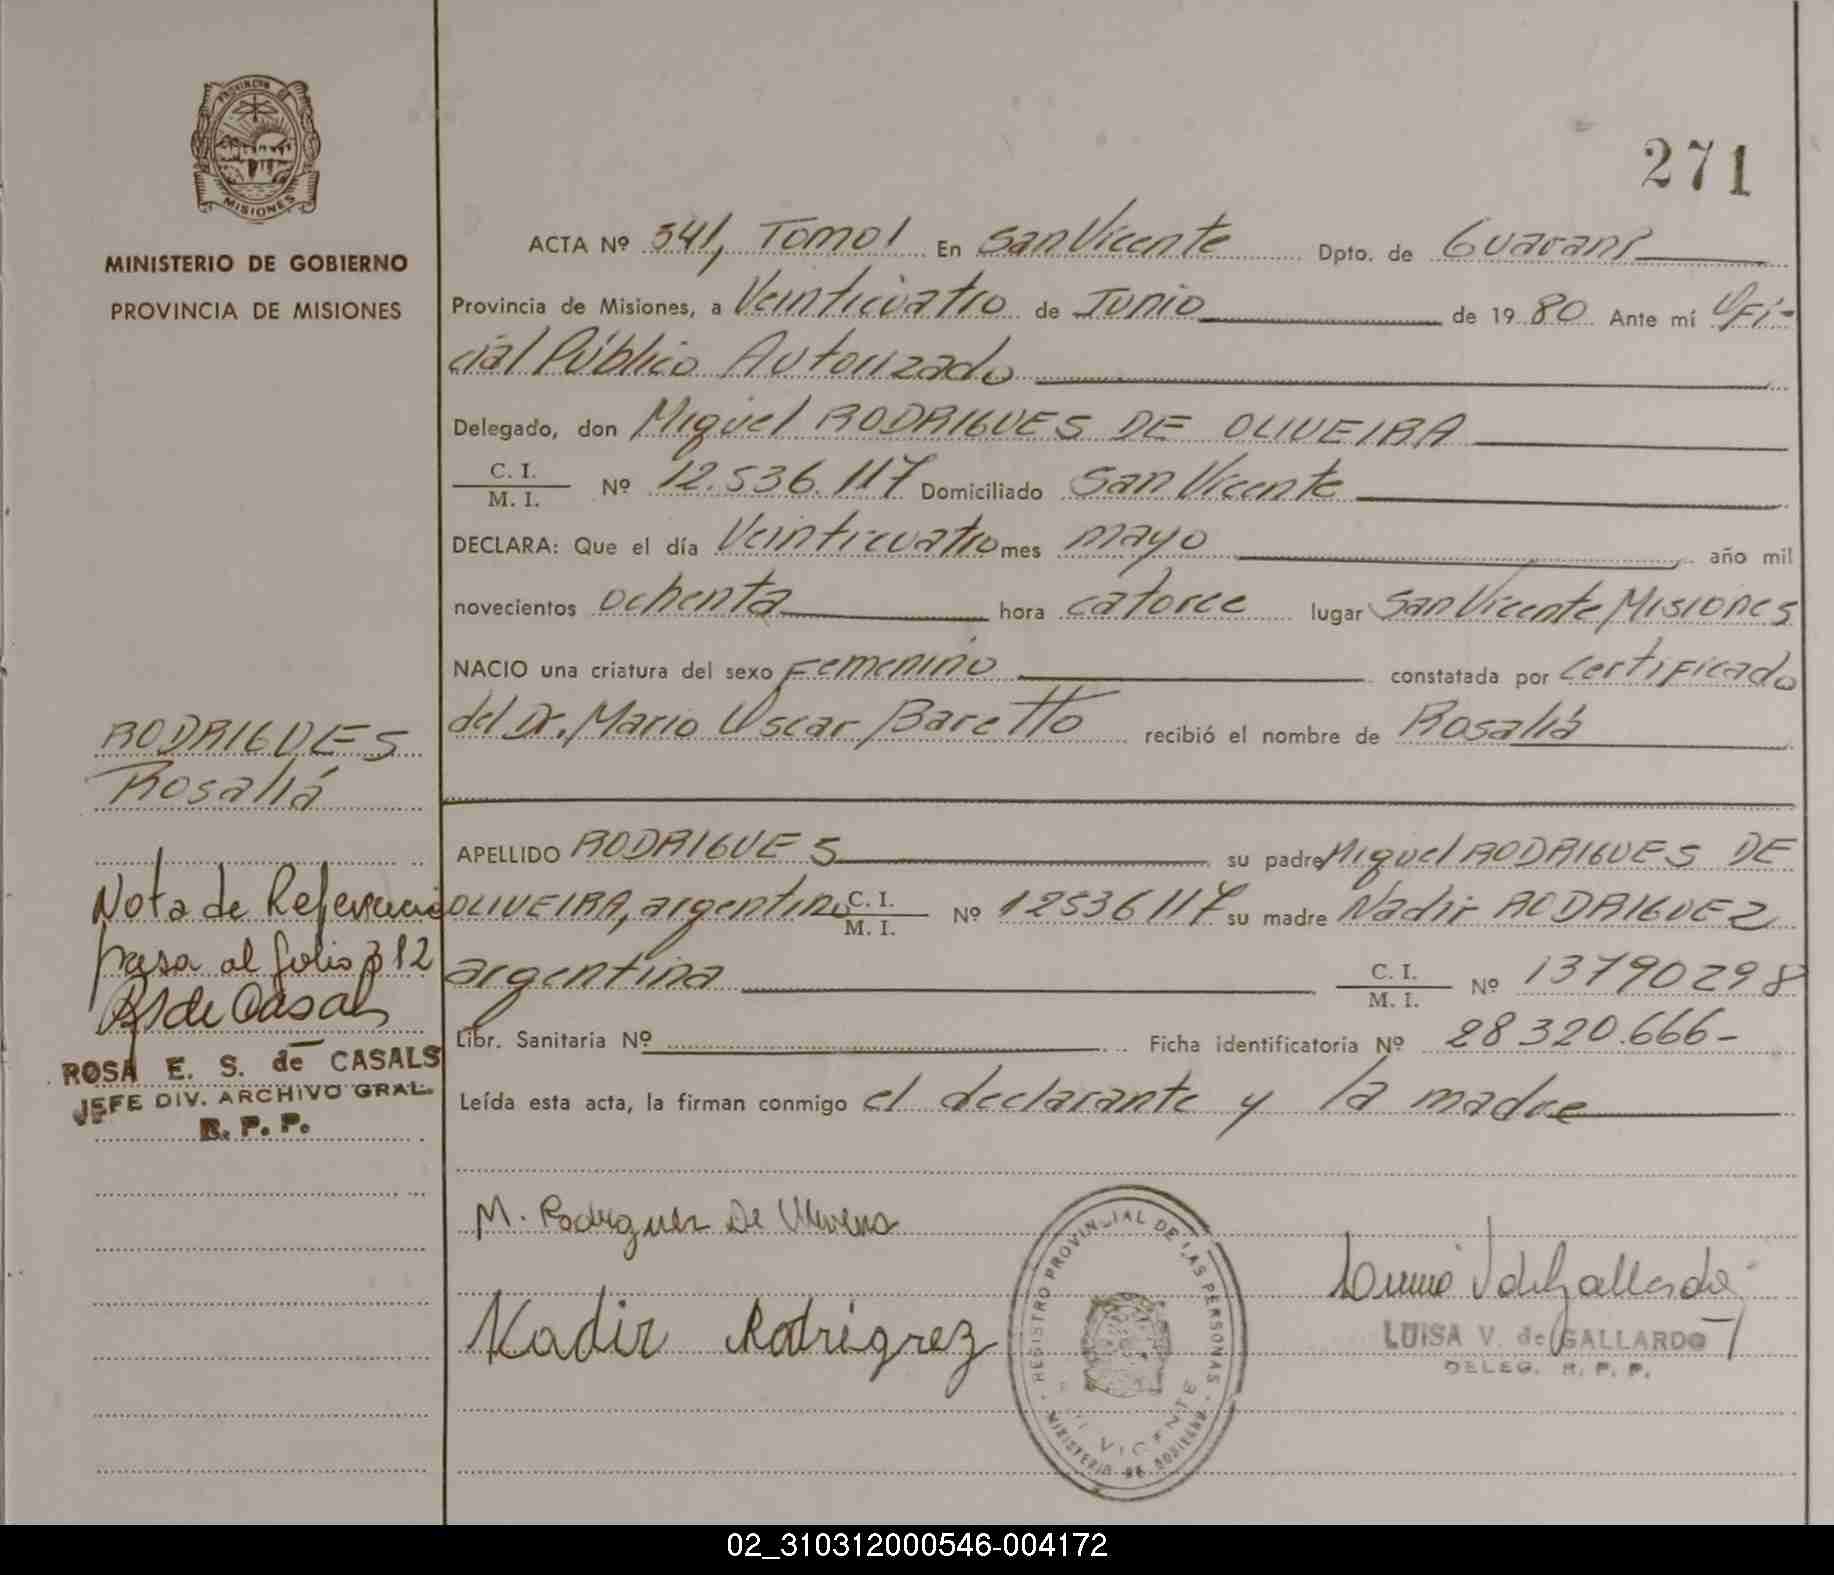 PROVINCIA DE
MISIONES
MINISTERIO DE GOBIERNO
PROVINCIA DE MISIONES
271
ACTA Nº 341, Tomo I En San Vicente Dpto. de Guaraní
Provincia de Misiones, a Veinticuatro de Junio de 19 80 Ante mí Ofi-
cial Público Autorizado
Delegado, don Miguel RODRIGUES DE OLIVEIRA
C. I.
M. I. Nº 12.536.117 Domiciliado San Vicente
DECLARA: Que el día Veinticuatro mes mayo año mil
novecientos ochenta hora catorce lugar San Vicente Misiones
NACIO una criatura del sexo Femenino constatada por certificado
del Dr. Mario Oscar Baretto recibió el nombre de Rosaliá
RODRIGUES
Rosaliá
APELLIDO RODRIGUES su padre Miguel RODRIGUES DE
OLIVEIRA, argentino C. I.
M. I. Nº 12536117 su madre Nadir RODRIGUEZ
argentina C. I.
M. I. Nº 13790298
Libr. Sanitaria Nº Ficha identificatoria Nº 28320.666-
Leída esta acta, la firman conmigo el declarante y la madre
Nota de Referencia
pasa al folio 312
de Casals
ROSA E. S. de CASALS
JEFE DIV. ARCHIVO GRAL.
R. P. P.
M. Rodriguez De
Nadir Rodrigrez
REGISTRO PROVINCIAL DE LAS PERSONAS
MINISTERIO DE GOBIERNO
VICENTE
V de Gallardo
LUISA V. de GALLARDO
DELEG. R. P. P.
02_310312000546-004172